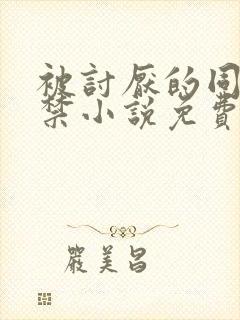 被討厭的同
禁小說免費
嚴美昌